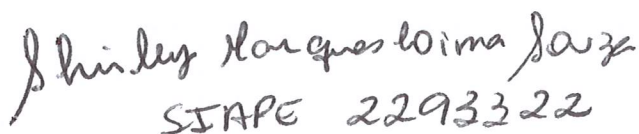 Shirley Marques Loima Souza
SIAPE 2293322